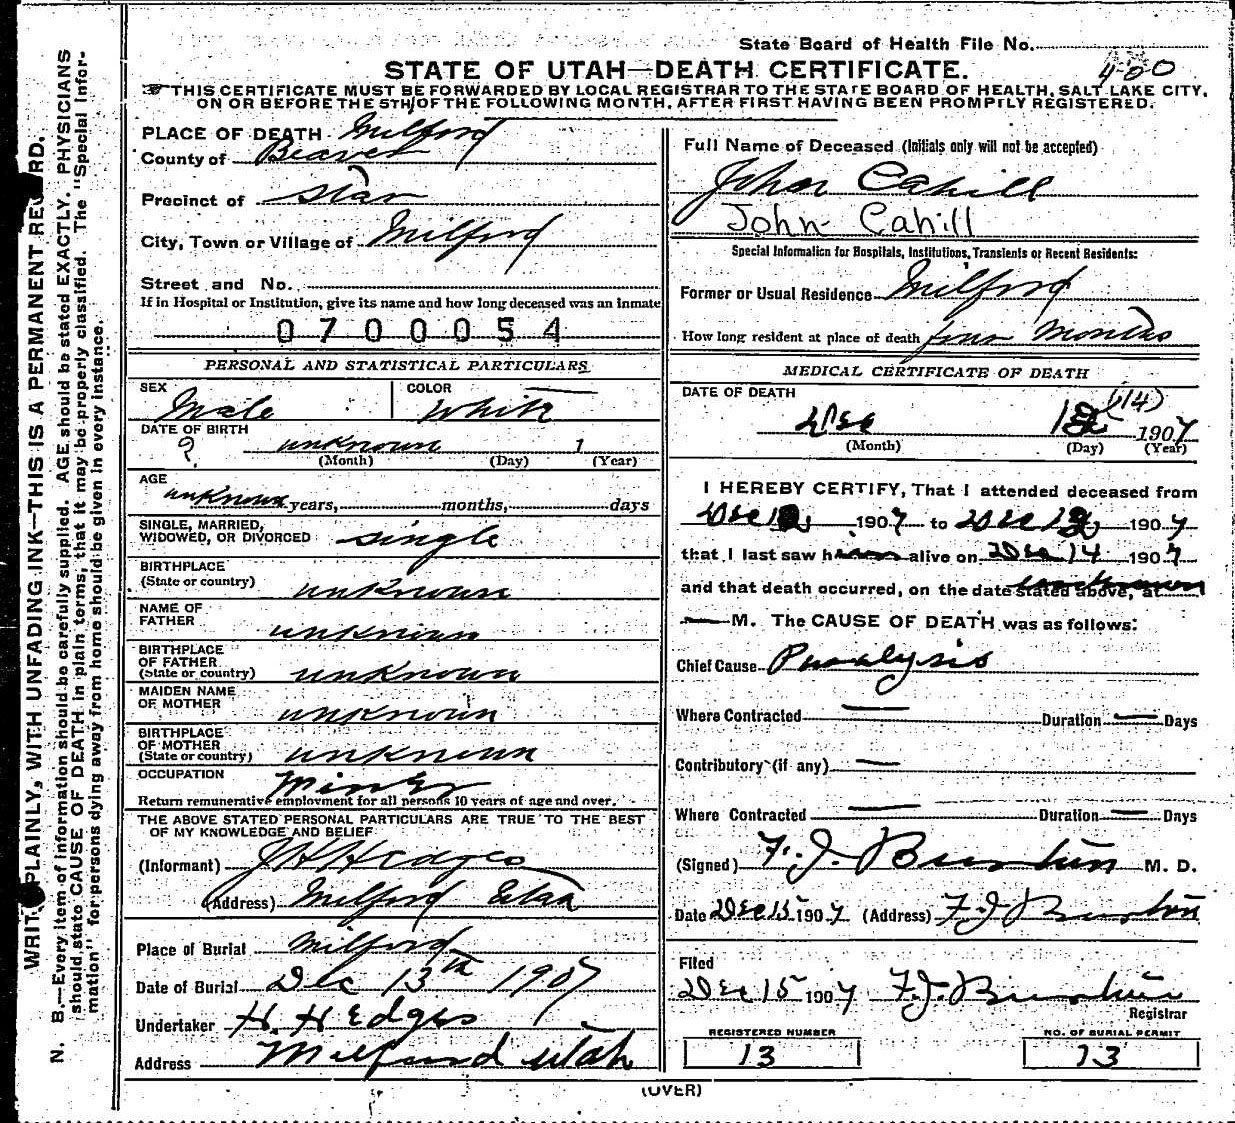 State Board of Health File No.
400
STATE OF UTAH—DEATH CERTIFICATE.
THIS CERTIFICATE MUST BE FORWARDED BY LOCAL REGISTRAR TO THE STATE BOARD OF HEALTH, SALT LAKE CITY,
ON OR BEFORE THE 5TH OF THE FOLLOWING MONTH, AFTER FIRST HAVING BEEN PROMPTLY REGISTERED.
WRITE PLAINLY, WITH UNFADING INK—THIS IS A PERMANENT RECORD.
N. B.—Every item of information should be carefully supplied. AGE should be stated EXACTLY. PHYSICIANS
should state CAUSE OF DEATH in plain terms, that it may be properly classified. The "Special Infor-
mation" for persons dying away from home should be given in every instance.
PLACE OF DEATH Milford
County of Beaver
Precinct of Star
City, Town or Village of Milford
Street and No.
If in Hospital or Institution, give its name and how long deceased was an inmate
0700054
PERSONAL AND STATISTICAL PARTICULARS
SEX Male COLOR White
DATE OF BIRTH
? unknown 1
(Month) (Day) (Year)
AGE
unknown years, months, days
SINGLE, MARRIED,
WIDOWED, OR DIVORCED single
BIRTHPLACE
(State or country) unknown
NAME OF
FATHER unknown
BIRTHPLACE
OF FATHER
(State or country) unknown
MAIDEN NAME
OF MOTHER unknown
BIRTHPLACE
OF MOTHER
(State or country) unknown
OCCUPATION Miner
Return remunerative employment for all persons 10 years of age and over.
THE ABOVE STATED PERSONAL PARTICULARS ARE TRUE TO THE BEST
OF MY KNOWLEDGE AND BELIEF
(Informant) J H Hedges
(Address) Milford Utah
Place of Burial Milford
Date of Burial Dec 13th 1907
Undertaker H. H Edges
Address Milford Utah
Full Name of Deceased (Initials only will not be accepted)
John Cahill
John Cahill
Special Information for Hospitals, Institutions, Transients or Recent Residents:
Former or Usual Residence Milford
How long resident at place of death four Months
MEDICAL CERTIFICATE OF DEATH
DATE OF DEATH
Dec 12 (14) 1907
(Month) (Day) (Year)
I HEREBY CERTIFY, That I attended deceased from
Dec 12, 1907 to Dec 12, 1907
that I last saw h alive on Dec 14 1907
and that death occurred, on the date stated above, at unknown
M. The CAUSE OF DEATH was as follows:
Chief Cause Paralysis
Where Contracted — Duration — Days
Contributory (if any) —
Where Contracted — Duration — Days
(Signed) F. J. Burton M. D.
Date Dec 15 1907 (Address) F. J Burton
Filed
Dec 15 1907 F. J. Burton
Registrar
REGISTERED NUMBER NO. OF BURIAL PERMIT
13 13
(OVER)